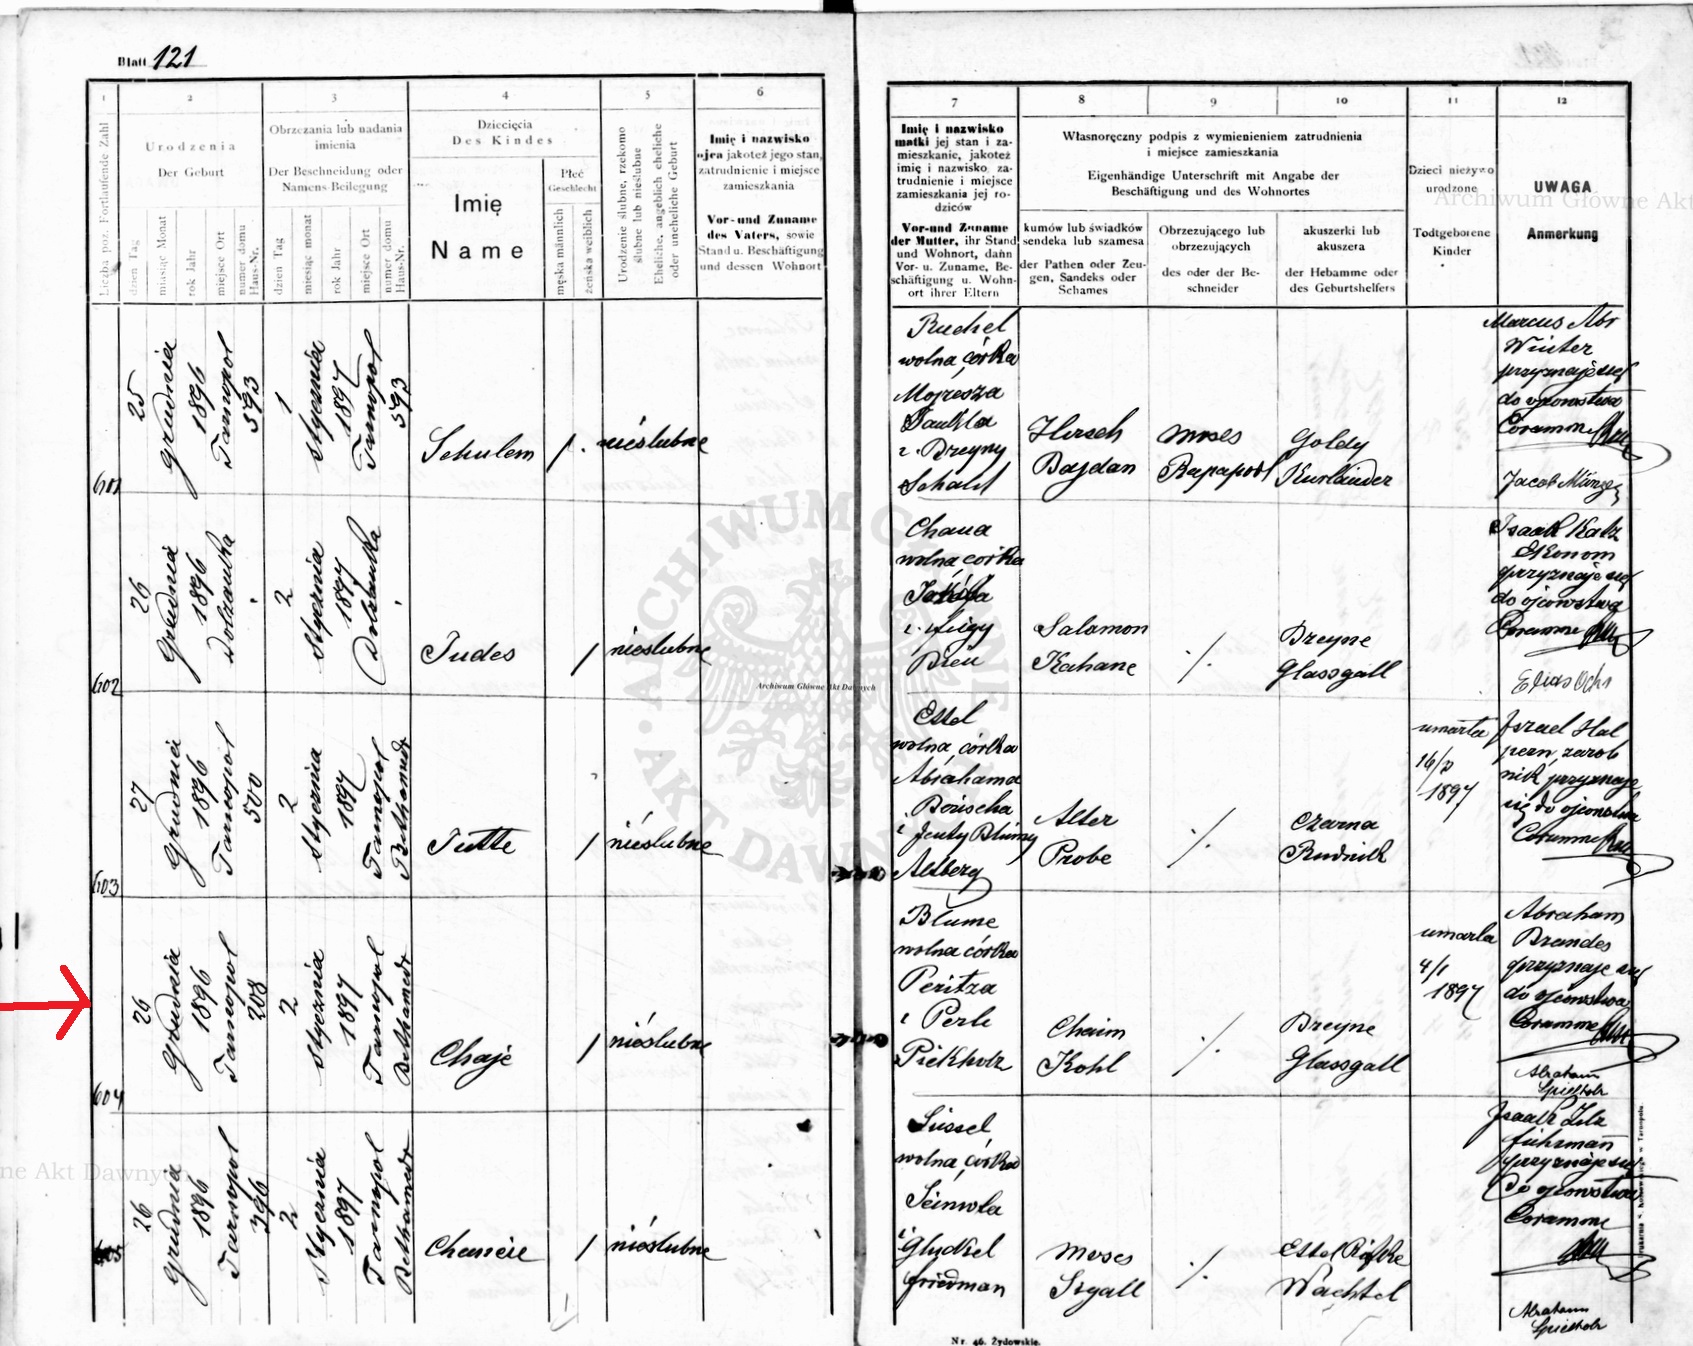 Blatt 121
1 2 3 4 5 6
Liczba poz. Fortlaufende Zahl
Urodzenia
Der Geburt
Obrzezania lub nadania
imienia
Der Beschneidung oder
Namens-Beilegung
Dziecięcia
Des Kindes
Imię
Name
Płeć
Geschlecht
męska männlich
żeńska weiblich
Urodzenie ślubne, rzekomo
ślubne lub nieślubne
Eheliche, angeblich eheliche
oder uneheliche Geburt
Imię i nazwisko
ojca jakoteż jego stan,
zatrudnienie i miejsce
zamieszkania
Vor- und Zuname
des Vaters, sowie
Stand u. Beschäftigung
und dessen Wohnort
dzień Tag
miesiąc Monat
rok Jahr
miejsce Ort
numer domu
Haus-Nr.
dzień Tag
miesiąc monat
rok Jahr
miejsce Ort
numer domu
Haus-Nr.
7 8 9 10 11 12
Imię i nazwisko
matki jej stan i za-
mieszkanie, jakoteż
imię i nazwisko, za-
trudnienie i miejsce
zamieszkania jej ro-
dziców
Vor-und Zuname
der Mutter, ihr Stand
und Wohnort, dann
Vor- u. Zuname, Be-
schäftigung u. Wohn-
ort ihrer Eltern
Własnoręczny podpis z wymienieniem zatrudnienia
i miejsce zamieszkania
Eigenhändige Unterschrift mit Angabe der
Beschäftigung und des Wohnortes
kumów lub świadków
sendeka lub szamesa
der Pathen oder Zeu-
gen, Sandeks oder
Schames
Obrzezującego lub
obrzezujących
des oder der Be-
schneider
akuszerki lub
akuszera
der Hebamme oder
des Geburtshelfers
Dzieci nieżywo
urodzone
Todtgeborene
Kinder
UWAGA
Anmerkung
601
25
grudnia
1896
Tarnopol
593
1
stycznia
1897
Tarnopol
593
Schulem
1.
nieślubne
Ruchel
wolna córka
Mojżesza
i Breyny
Schald
Hersch
Bajdan
Moses
Rapaport
Goldy
Kurländer
Marcus Abr
Winter
przyznaje się
do ojcowstwa
Coramme
Jacob Münzer
602
26
grudnia
1896
Dolżanka
2
stycznia
1897
Dolżanka
Judes
1
nieślubne
Chana
wolna córka
i Feigy
Salamon
Kahane
Breyne
Glassgall
Isaak Katz
Ekonom
przyznaje się
do ojcowstwa
Coramme
Elias Ochs
603
27
Grudnia
1896
Tarnopol
500
2
stycznia
1897
Tarnopol
Bethamidr
Jutte
1
nieślubne
Estel
wolna córka
Abrahama
i Jenty Blümy
Altberg
Alter
Probe
Czarna
Rudnik
umarła
16/2
1897
Israel Hal
pern zarob
nik przyznaje
się do ojcowstwa
Coramme
604
26
Grudnia
1896
Tarnopol
208
2
stycznia
1897
Tarnopol
Bethamidr
Chaje
1
nieślubne
Blume
wolna córka
Peritza
i Perli
Pickholz
Chaim
Kohl
Breyne
Glassgall
umarła
4/1
1897
Abraham
Brandes
przyznaje się
do ojcowstwa
Coramme
Abraham
Spielholz
605
26
grudnia
1896
Tarnopol
396
2
stycznia
1897
Tarnopol
Bethamidr
1
nieślubne
Süssel
wolna córka
i Gludkel
Friedman
Moses
Segall
Estel Rifke
Wachtel
Isaak
führman
przyznaje się
do ojcowstwa
Coramme
Abraham
Spielholz
Nr. 46. Żydowskie.
ARCHIWUM GŁÓWNE AKT DAWNYCH
Archiwum Główne Akt Dawnych
Archiwum Główne Akt
ne Akt Dawnych